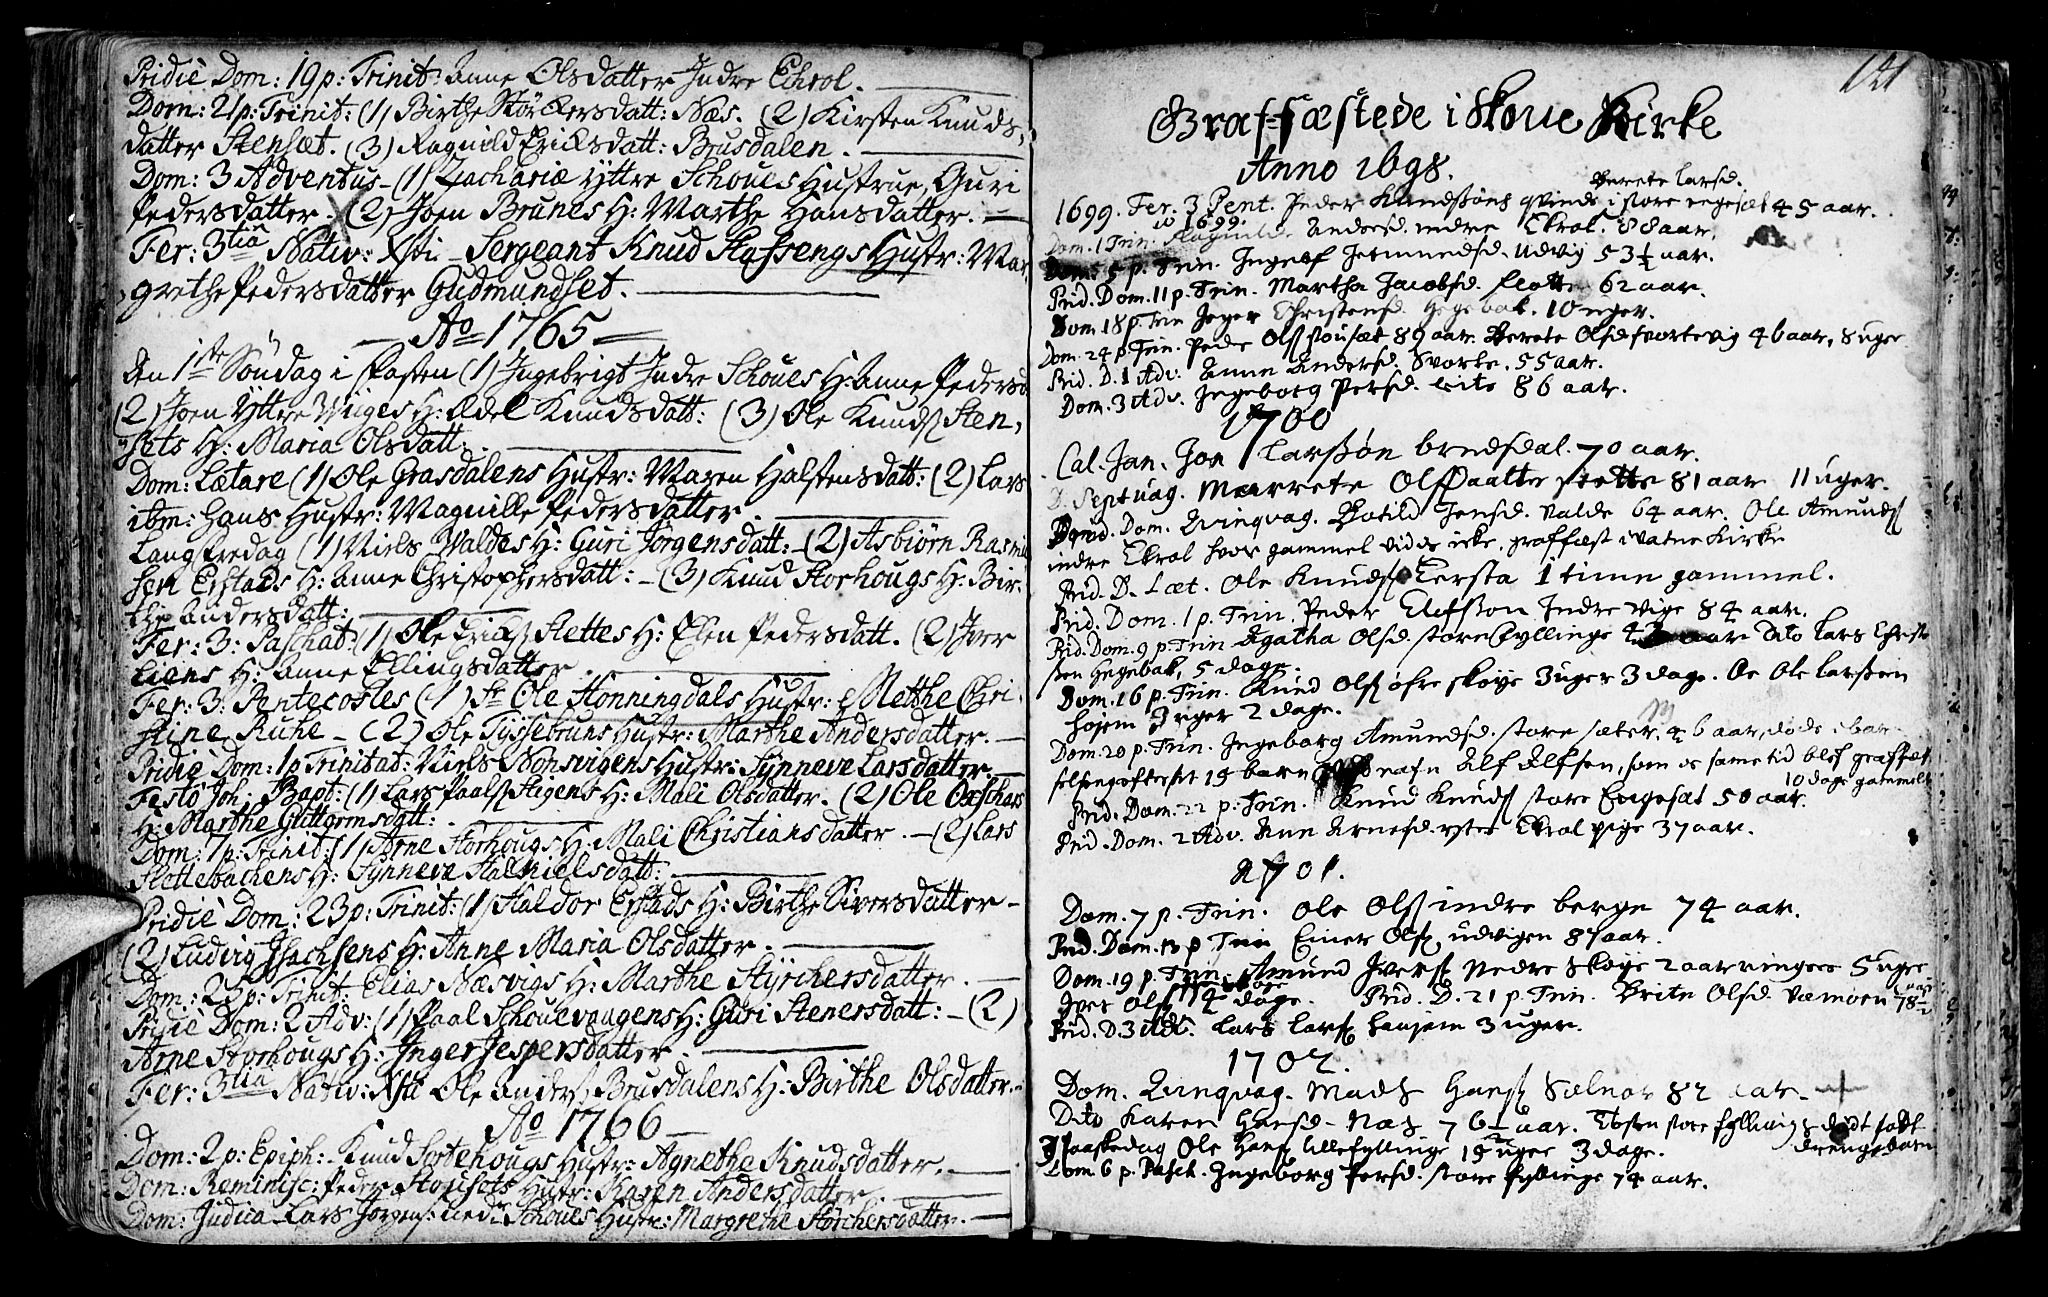 Pridie Dom: 19 p: Trinit: Anne Olsdatter Indre Ekrol.
Dom: 21 p: Trinit: (1) Birthe Störkersdatt: Næs. (2) Kirsten Knuds-
datter Stensæt. (3) Ragnild Ericksdatt: Brusdalen.
Dom: 3 Adventus - (1) Zachariæ Yttre Schoues Hustrue, Guri
Pedersdatter. (2) Joen Brunes H: Marthe Hansdatter.
Fer: 3tiâ Nativ: Xsti - Sergeant Knud Stafsengs Hustr: Mar-
grethe Pedersdatter Gudmundset.
Ao 1765
Den 1ste Söndag i Fasten (1) Ingebrigt Indre Schoues H: Anne Pedersd
(2) Joen Yttre Wiiges H: Edel Knudsdatt: (3) Ole Knuds Sten,
sets H: Maria Olsdatt:
Dom: Lætare (1) Ole Grasdalens Hustr: Maren Halstensdatt: (2) Lars
ibm: Hans Hustr: Magnille Pedersdatter.
Langfredag (1) Niels Waldes H: Guri Jörgensdatt: - (2) Asbiörn Rasmu
sen Erstads H: Anne Christophersdatt: - (3) Knud Storhougs H: Bir-
the Andersdatt:
Fer: 3: Paschat: (1) Ole Ericks Slettes H: Elen Pedersdatt. (2) Iver
Liens H: Anne Ellingsdatter
Fer: 3: Pentecostes (1) Sr Ole Honningdals Hustr: Metthe Chri-
stine Ruhe - (2) Ole Tyssebruns Hustr: Marthe Andersdatter.
Pridie Dom: 1 p Trinitat: Niels Nonsvigens Hustr: Synneve Larsdatter.
Festo Joh: Bapt: (1) Lars Paals Stigens H: Mali Olsdatter. (2) Ole Oxschars
H: Marthe Guttormsdatt:
Dom: 1 p: Trinit: (1) Arne Storhougs H: Mali Christiansdatter. - (2) Lars
Slottebackens H: Synneve Nielsdatt:
Pridie Dom: 23 p: Trinit: (1) Haldor Erstads H: Birthe Siversdatter -
(2) Ludvig Isachsens H: Anne Maria Olsdatter.
Dom: 25 p: Trinit: Elias Næsvigs H: Marthe Styrchersdatter.
Pridie Dom: 2 Adv: (1) Paal Schouevangens H: Guri Stenersdatt: - (2)
Arne Storhougs H: Inger Jespersdatter.
Fer: 3tiâ Nativ: Xsti Ole Anders Brusdalens H: Birthe Olsdatter.
Ao 1766
Dom: 2 p: Epiph: Knud Sortehougs Hustr: Agnethe Knudsdatter.
Dom: Reminisc: Peder Stousets Hustr: Karen Andersdatter.
Dom: Judica - Lars Jörgens: nedr Schoues Hustr: Margrethe Störchersdatter.
121
Graf-fæstede i Skoue Kirke
Anno 1698.
Berete Larsd.
1699. Fer. 3 Pent. Peder Knudssöns qvinde i store engeset 45 aar.
1699.
Dom. 1 Trin. Ragnilde Andersd. indre Ekrol. 88 aar.
Dom. 5 p. Trin. Ingelf Jetmundsd. Udvig 53½ aar.
Prid. Dom. 11 p. Trin. Martha Jacobsd. slotte 62 aar.
Dom 18 p. Trin Inger Christensd. Hegebak. 10 uger.
Dom. 24 p. Trin. Peder Ols stouset 89 aar. Berete Olsd svortevig 46 aar, 8 uger
Prid. D. 1 Adv. Anne Andersd. Svorte. 55 aar.
Dom. 3 Adv. Ingeborg Persd. Lite 86 aar.
1700
Cal. Jan. Jon Larssön bredsdal. 70 aar.
D. Septuag. Marrete Olsdaatter slotte 81 aar 11 uger.
Prid. Dom. Qvinqvag. Botild Jensd. Valde 64 aar. Ole Amunds
indre Ekrol hvor gammel vides icke, graffæst i Vatne Kirke
Prid. D. Læt. Ole Knuds Eersta 1 time gammel.
Prid. Dom. 1 p. Trin. Peder Elefsson Indre Vige 84 aar.
Prid. Dom. 9 p. Trin Agatha Olsd. store fyllinge aar Dito Lars Christ
sen Hegebak, 5 dage.
Dom. 16 p. Trin. Knud Ols öfre skoye 3 uger 3 dage. Oc Ole Larssen
höjem 7 uger 2 dage.
Dom. 20 p. Trin. Ingeborg Amundsd. store sæter. 46 aar, döde i bar
selseng efter sit 15 barn Alf Alfsen, som oc samme tid blef graffæst
10 dage gammelt
Prid. Dom. 22 p. Trin. Knud Knuds store Engeset 50 aar.
Prid. Dom. 2 Adv. Ann Arnesd. yster Ekrol pige 37 aar.
1701.
Dom. 7 p. Trin. Ole Ols indre berge 74 aar.
Prid. Dom. 13 p Trin Einer Ols udvigen 87 aar.
Dom. 19 p. Trin. Amund Ivers Nedre Skoye 2 aar ringere 5 uger
Iver Ols 14 dage. Prid. D. 21 p. Trin. Brite Olsd. Væmoen 78½ aar
Prid. D. 3 Adv. Lars Lars haujem 3 uger.
1702.
Dom. Qvinqvag. Mads Hans Solnör 82 aar.
Dito Karen Hansd. Næs 76½ aar. Ebsten store fylling dödt födt
drengebarn
Paaskedag Ole Hans lillefyllinge 15 uger 3 dage.
Dom 6 p. Pasch. Ingeborg Persd. store fyllinge 74 aar.